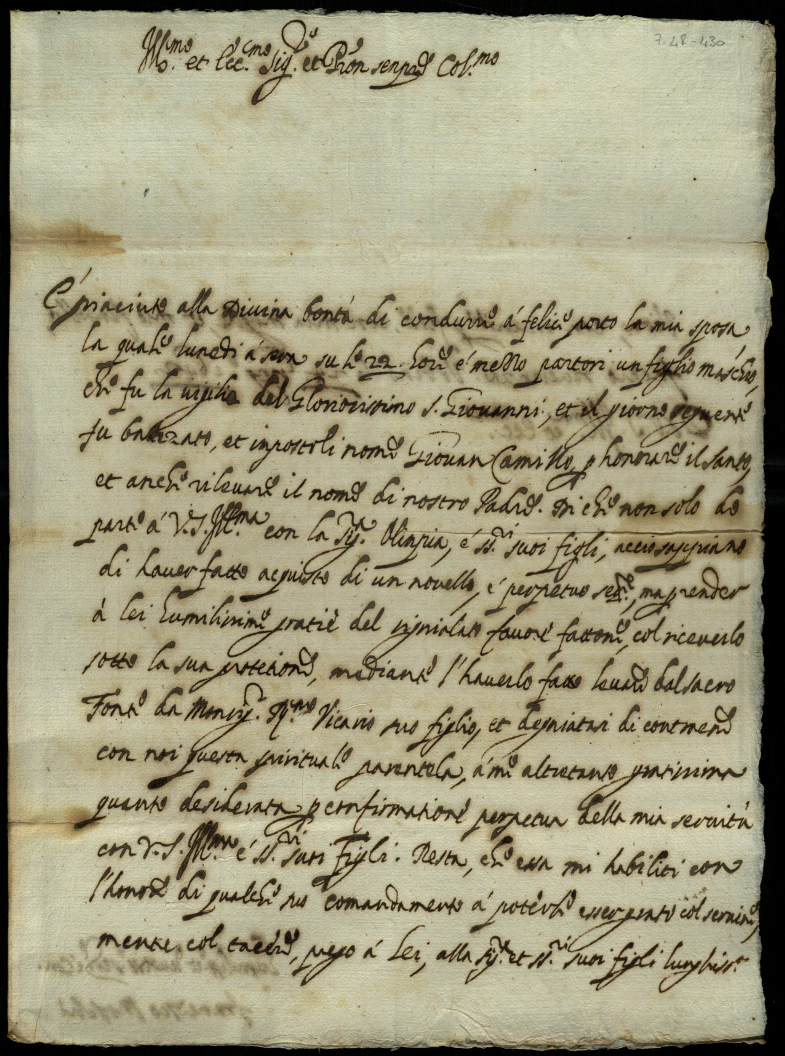 7.48-430
Ill.mo et Ecc.mo Sig.re et Pron senpre Col.mo
É piaciuto alla Divina bontà di condurre á felice porto la mia sposa
la quale lunedi á sera su le 22. hore é mezzo partori un figlio maschio,
che fu la vigilia del Gloriosissimo S. Giovanni, et il giorno seguente
fu batizato, et inpostoli nome Giovan Camillo, p honorare il Santo,
et anche rilevare il nome di nostro Padre. Di che non solo do
parte á V.S. Ill.ma con la Sig.ra Olinpia, é SS.ri suoi figli, acció sappiano
di haver fatto acquisto di un novello, é perpetuo ser.re, ma render
á lei humilissime gratie del signialato favore fattone, col riceverlo
sotto la sua protetione, mediante l'haverlo fatto levare dal sacro
Fonte da Monsig.r R.mo Vicario suo figlio, et degniatasi di contraere
con noi questa spirituale parentela, á me altretanto gratissima
quanto desiderata p confirmatione perpetua della mia servitù
con V.S. Ill.ma é SS.ri suoi figli. Resta, che essa mi habiliti con
l'honore di qualche suo comandamento á poterle esser grato col servire,
mentre col tacere, prego á Lei, alla Sig.ra et SS.ri suoi figli lunghiss.a